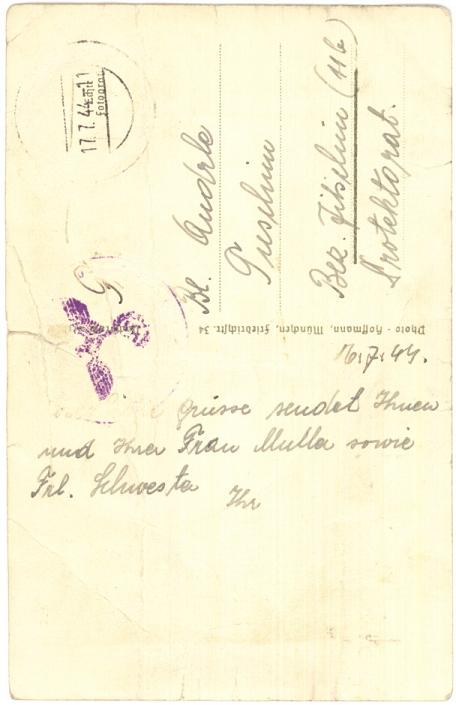 17.7.44-11
Bl. Andrle
Bez.
(11b)
Protektorat.
Photo - Hoffmann, München, Friedrichstr. 34
16.7.44.
Grüsse sendet Ihnen
und Ihrer Frau Mutter sowie
Frl. Schwester
Ihr